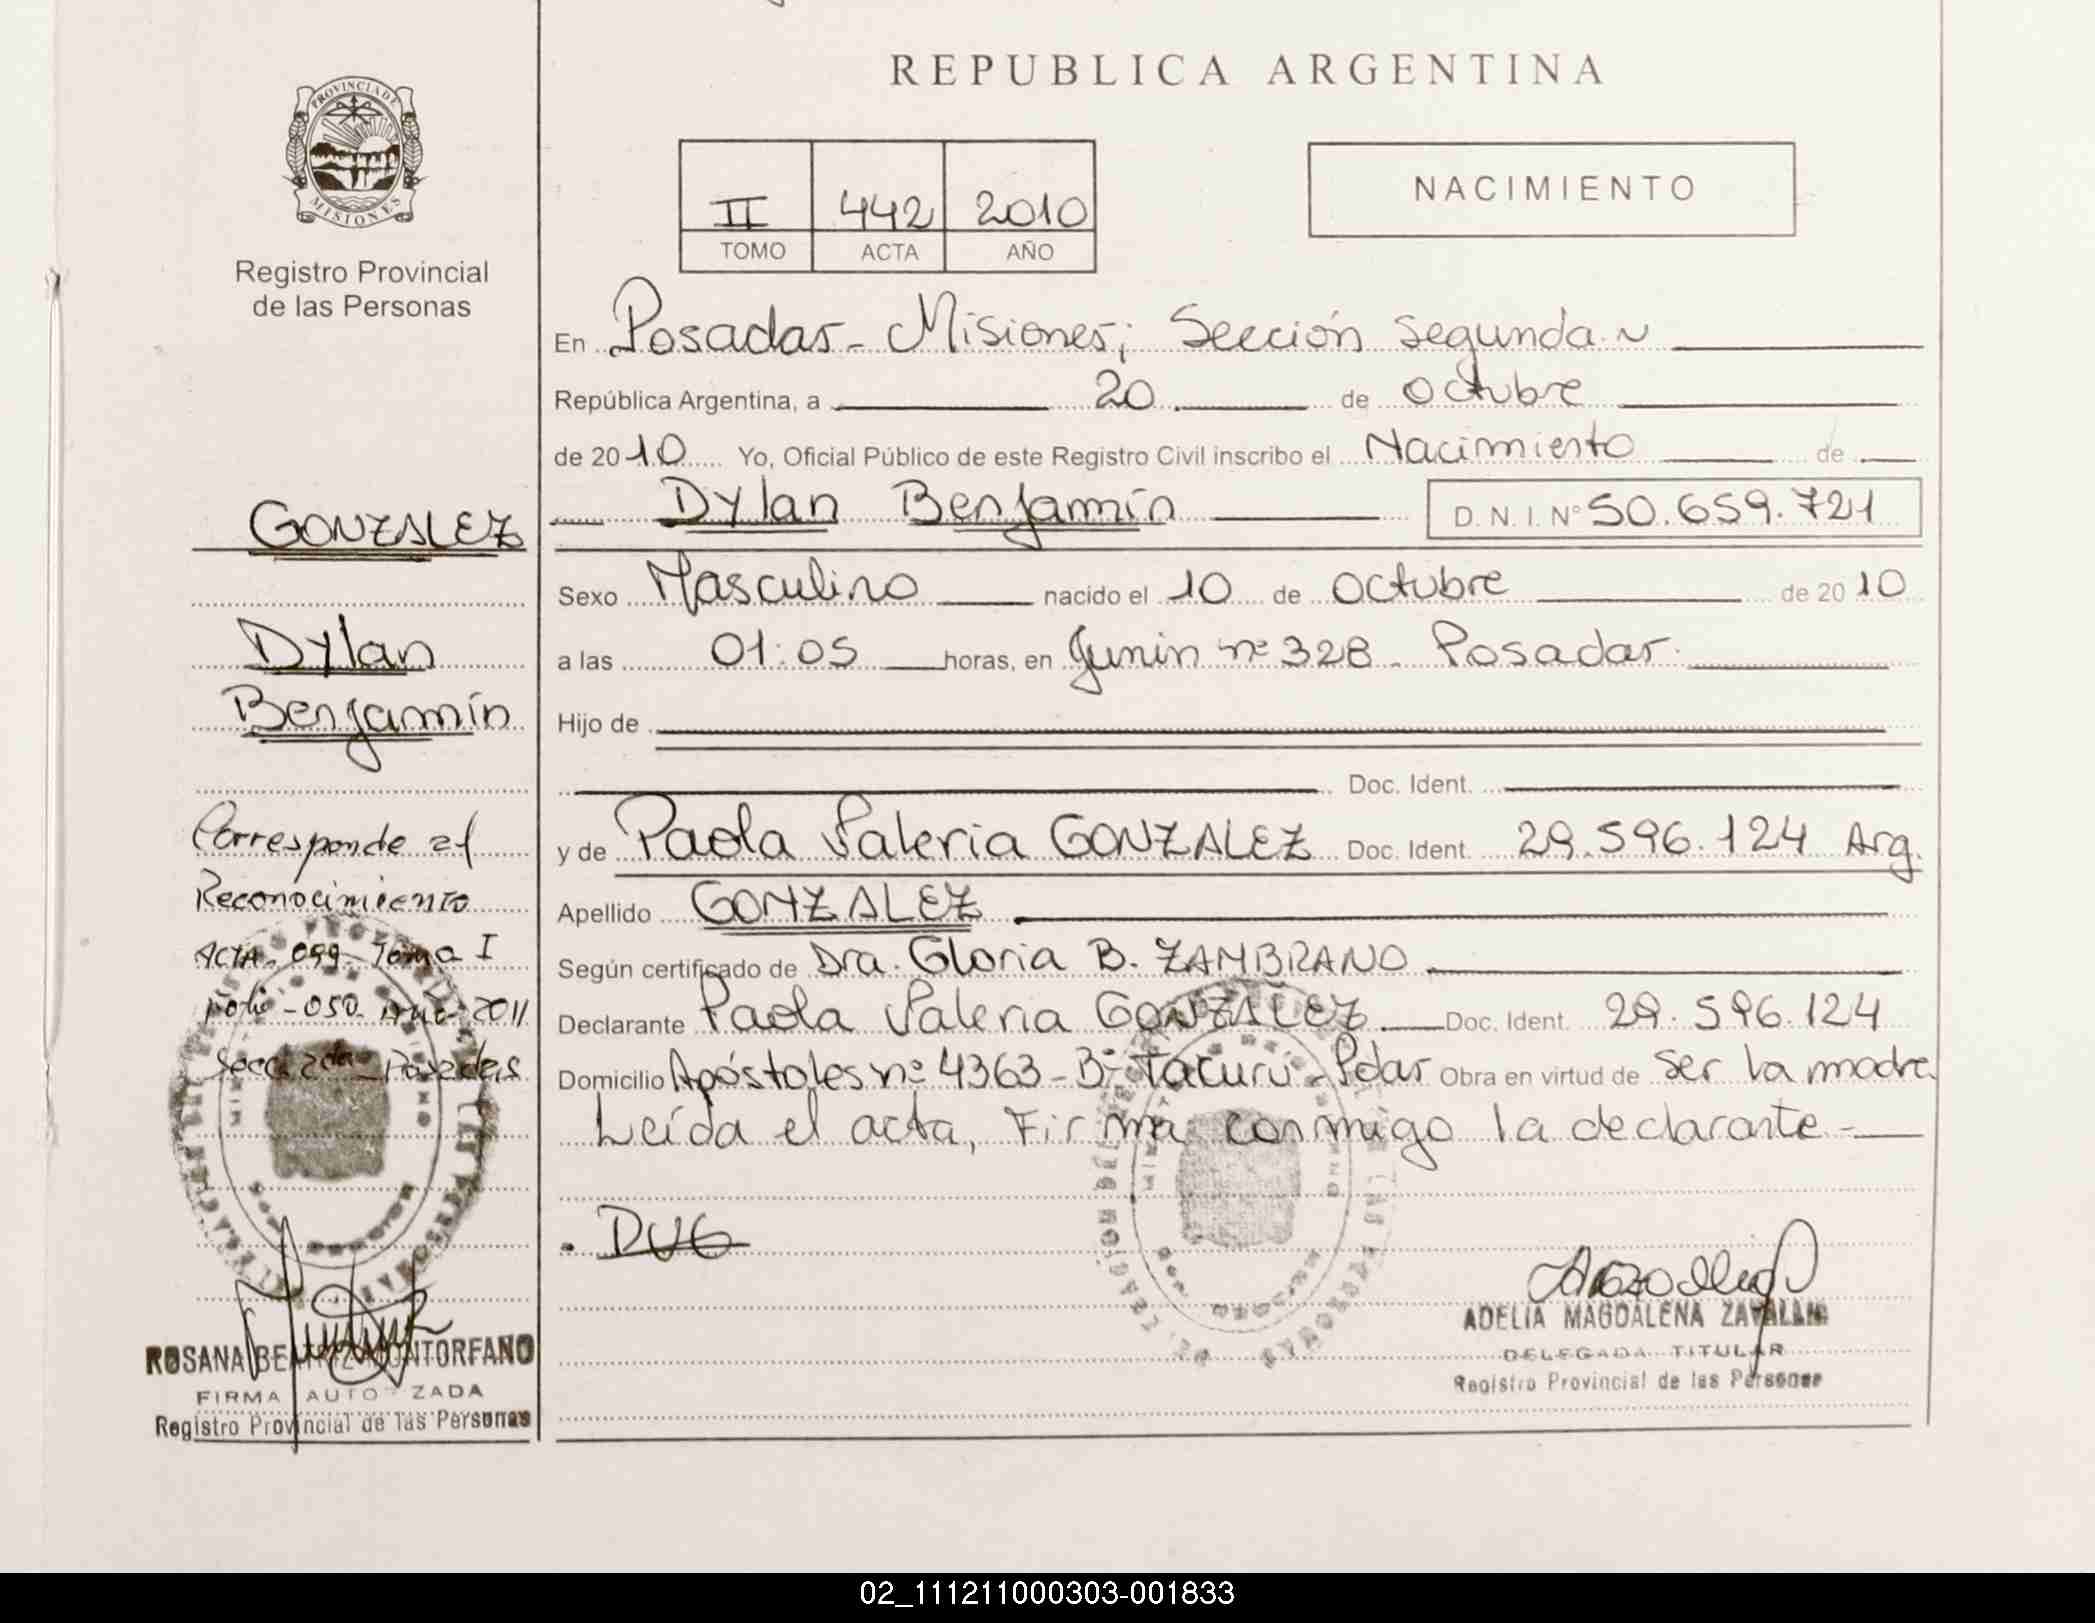 REPUBLICA ARGENTINA
PROVINCIA DE
MISIONES
Registro Provincial
de las Personas
II 442 2010
TOMO ACTA AÑO
NACIMIENTO
En Posadas - Misiones; Sección Segunda.~
República Argentina, a 20 de Octubre
de 2010 Yo, Oficial Público de este Registro Civil inscribo el Nacimiento de
Dylan Benjamín D. N. I. Nº 50.659.721
Sexo Masculino nacido el 10 de Octubre de 2010
a las 01:05 horas, en Junín nº 328 - Posadas.
Hijo de
Doc. Ident.
y de Paola Valeria GONZALEZ Doc. Ident. 29.596.124 Arg.
Apellido GONZALEZ
Según certificado de Dra. Gloria B. ZAMBRANO
Declarante Paola Valeria GONZALEZ Doc. Ident. 29.596.124
Domicilio Apóstoles nº 4363 - Bº Tacurú - Pdas Obra en virtud de ser la madre
Leída el acta, firma conmigo la declarante -
. DUG
ADELIA MAGDALENA
DELEGADA TITULAR
Registro Provincial de las Personas
GONZALEZ
Dylan
Benjamín
Corresponde al
Reconocimiento
ACTA - 099 - Tomo I
Folio - 050 - Año - 2011
Secc. 2da - Posadas
ROSANA BEATRIZ MONTORFANO
FIRMA AUTORIZADA
Registro Provincial de las Personas
02_111211000303-001833